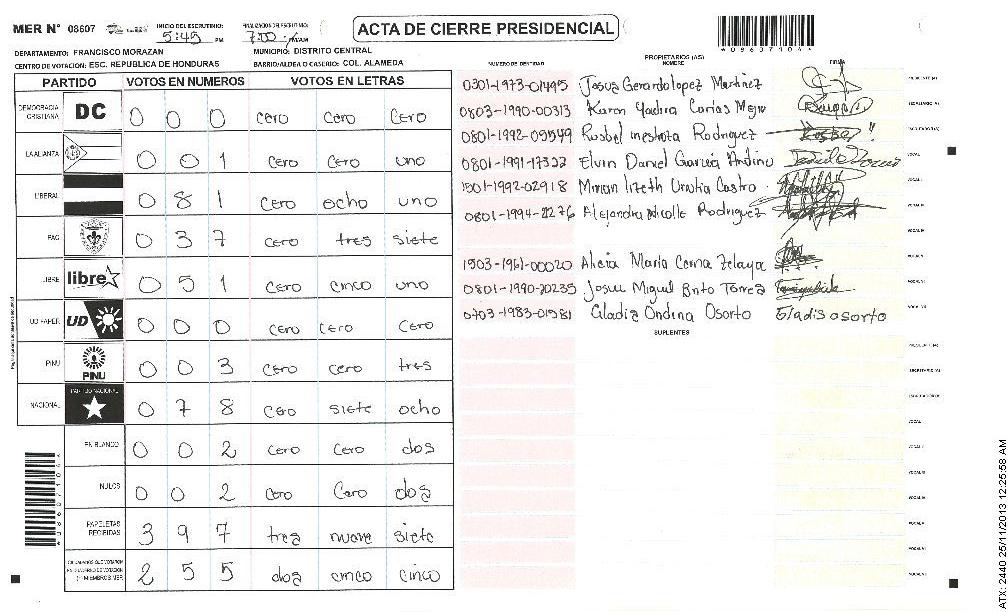 MER N° 08607
INICIO DEL ESCRUTINIO: 5:45 PM
FINALIZACION DEL ESCRUTINIO: 7:00 PM/AM
ACTA DE CIERRE PRESIDENCIAL
DEPARTAMENTO: FRANCISCO MORAZAN MUNICIPIO: DISTRITO CENTRAL
CENTRO DE VOTACION: ESC. REPUBLICA DE HONDURAS BARRIO/ALDEA O CASERIO: COL. ALAMEDA
PARTIDO VOTOS EN NUMEROS VOTOS EN LETRAS
DEMOCRACIA CRISTIANA DC 0 0 0 cero cero cero
LA ALIANZA 0 0 1 cero cero uno
LIBERAL 0 8 1 cero ocho uno
PAC 0 3 7 cero tres siete
LIBRE libre 0 5 1 cero cinco uno
UD FAPER UD 0 0 0 cero cero cero
PINU PINU 0 0 3 cero cero tres
NACIONAL PARTIDO NACIONAL 0 7 8 cero siete ocho
EN BLANCO 0 0 2 cero cero dos
NULOS 0 0 2 cero cero dos
PAPELETAS RECIBIDAS 3 9 7 tres nueve siete
CIUDADANOS QUE VOTARON 2 5 5 dos cinco cinco
PROPIETARIOS (AS)
NUMERO DE IDENTIDAD NOMBRE FIRMA
0301-1973-01495 Josua Gerardo lopez Martinez
0803-1990-00313 Karen Yadira Corias
0801-1992-05549 Rosbel Rodriguez
0801-1991-17322 Elvin Daniel Garcia Andino
1501-1992-02918 Mirian lizeth Urotia Castro
0801-1994-22276 Alejandra Nicolle Rodriguez
1503-1961-00020 Alicia Maria Cerna Zelaya
0801-1990-20235 Josue Miguel Brito Torrez
0703-1983-01581 Gladis Ondina Osorto Gladis osorto
SUPLENTES
ATX: 2440 25/11/2013 12:25:58 AM